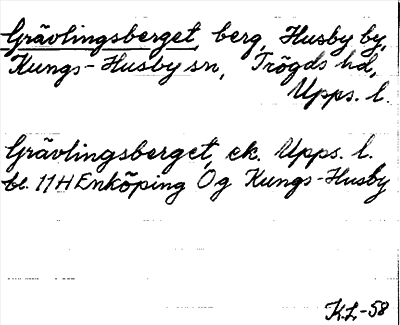 Grävlingsberget, berg, Husby by,
Kungs-Husby sn, Trögds hd,
Upps. l.
Grävlingsberget, ek. Upps. l.
bl. 11H Enköping Og Kungs-Husby
K.L.-58